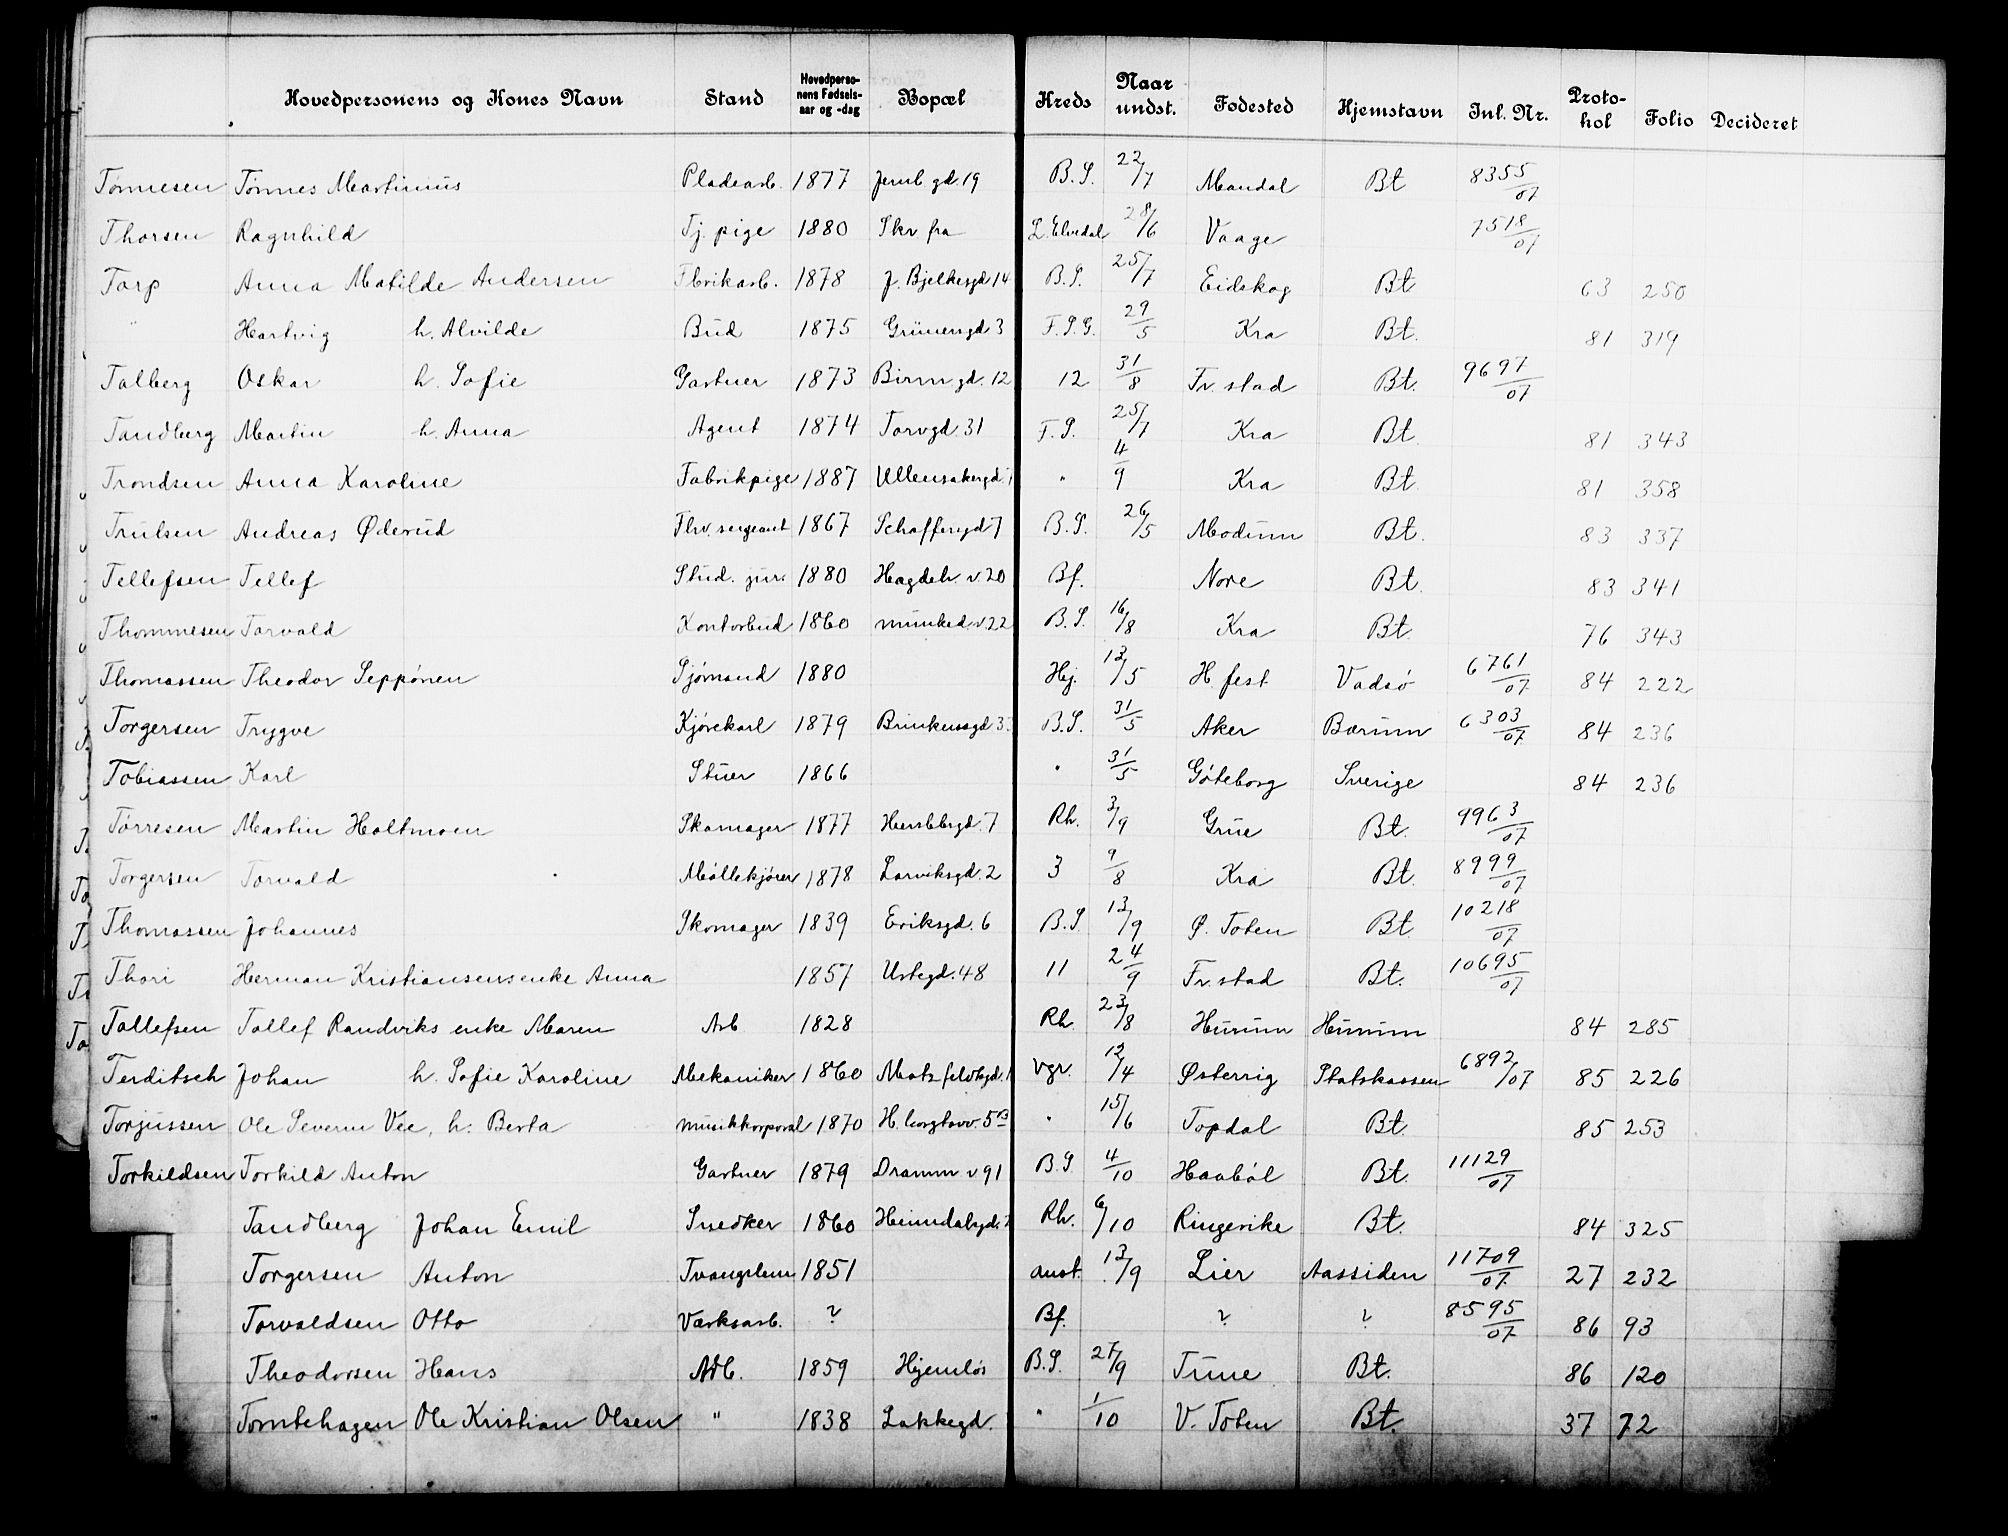 Hovedpersonens og Kones Navn Stand Hovedpersonens Fødselsaar og -dag Bopæl Kreds Naar undst. Fødested Hjemstavn Inl. Nr. Protokol Folio Decideret
Tønnesen Tønnes Martinius Pladearb. 1877 Jernb.gd. 19 B.S. 22/7 Mandal Bt 8355/07
Thorsen Ragnhild Tj. pige 1880 Skr fra L. Elvedal 28/6 Vaage 7518/07
Tarp Anna Matilde Andersen Fbrikarb. 1878 J. Bjelkesgd 14 B.S. 25/7 Eidskog Bt 63 250
" Hartvig h. Alvilde Bud 1875 Grünersgd 3 F.S.G. 29/5 Kra Bt. 81 319
Talberg Oskar h. Sofie Gartner 1873 Birm gd. 12 12 31/8 Fr. stad Bt. 9697/07
Tandberg Martin h. Anna Agent 1874 Torvgd. 31 F.S. 25/7 Kra Bt. 81 343
Trondsen Anna Karoline Fabrikpige 1887 Ullensakergd. " 4/9 Kra Bt. 81 358
Trulsen Andreas Øderud Flrv. sergeant 1867 Schaffersgd 7 B.S. 26/5 Modum Bt. 83 337
Tellefsen Tellef Stud. jur. 1880 Hagdeh. v. 20 Bf. Nore Bt. 83 341
Thommesen Torvald Kontorbud 1860 munked. v. 22 B.S. 16/8 Kra Bt. 76 343
Thomassen Theodor Seppönen Sjømand 1880 Hj. 13/5 H. fest Vadsø 6761/07 84 222
Torgersen Trygve Kjørekarl 1879 Brinkensgd 33 B.S. 31/5 Aker Bærum 6303/07 84 236
Tobiassen Karl Stuer 1866 " 31/5 Göteborg Sverige 84 236
Tørresen Martin Holtmoen Skomager 1877 Herslebsgd. 7 Rh. 3/9 Grue Bt. 9963/07
Torgersen Torvald Møllekjører 1878 Larviksgd. 2 3 9/8 Kra Bt. 8999/07
Thomassen Johannes Skomager 1839 Eriksgd. 6 B.S. 13/9 Ø. Toten Bt. 10218/07
Thori Herman Kristiansens enke Anna 1857 Urtegd. 48 11 24/9 Fr. stad Bt. 10695/07
Tallefsen Tallef Randviks enke Maren Arb 1828 Rh 23/8 Hurum Hurum 84 285
Terditsch Johan h. Sofie Karoline Mekaniker 1860 Motzfeldtsgd. 1 Vgr. 12/4 Østerrig Statskassen 6892/07 85 226
Torjussen Ole Severin Vee, h. Berta musikkorporal 1870 H. borgtrvv. 5 B " 15/6 Topdal Bt. 85 253
Torkildsen Torkild Anton Gartner 1879 Dramm v 91 B.S 4/10 Haabøl Bt. 11129/07
Tandberg Johan Emil Snedker 1860 Heimdalsgd. Rh. 6/10 Ringerike Bt. 84 325
Torgersen Anton Tvangslem 1851 anst. 13/9 Lier Aassiden 11709/07 27 232
Torvaldsen Otto Værksarb. ? Bf. ? ? 8595/07 86 93
Theodorsen Hans Arb. 1859 Hjemløs B.S. 27/9 Tune Bt. 86 120
Torntehagen Ole Kristian Olsen " 1838 Lakkegd. " 1/10 V. Toten Bt. 37 72